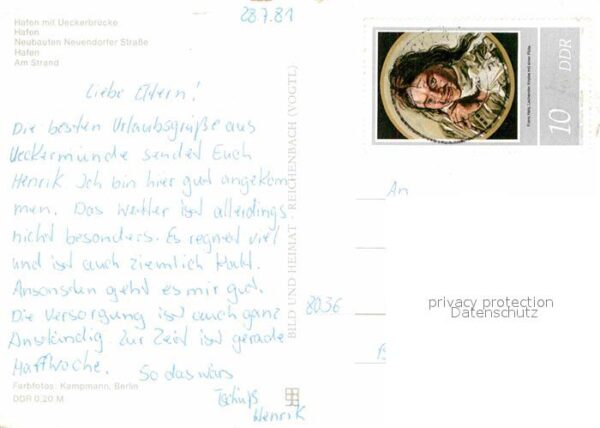 28.7.81
Hafen mit Ueckerbrücke
Hafen
Neubauten Neuendorfer Straße
Hafen
Am Strand
Liebe Eltern!
Die besten Urlaubsgrüße aus
Ueckermünde sendet Euch
Henrik. Ich bin hier gut angekom
men. Das Wetter ist allerdings
nicht besonders. Es regnet viel
und ist auch ziemlich kalt.
Ansonsten geht es mir gut.
Die Versorgung ist auch ganz
Anständig. Zur Zeit ist gerade
Haffwoche.
So das wars
Tschüß
Henrik
Farbfotos: Kampmann, Berlin
DDR 0,20 M
BILD UND HEIMAT REICHENBACH (VOGTL)
Frans Hals, Lachender Knabe mit einer Flöte
10 DDR
An
8036
privacy protection
Datenschutz